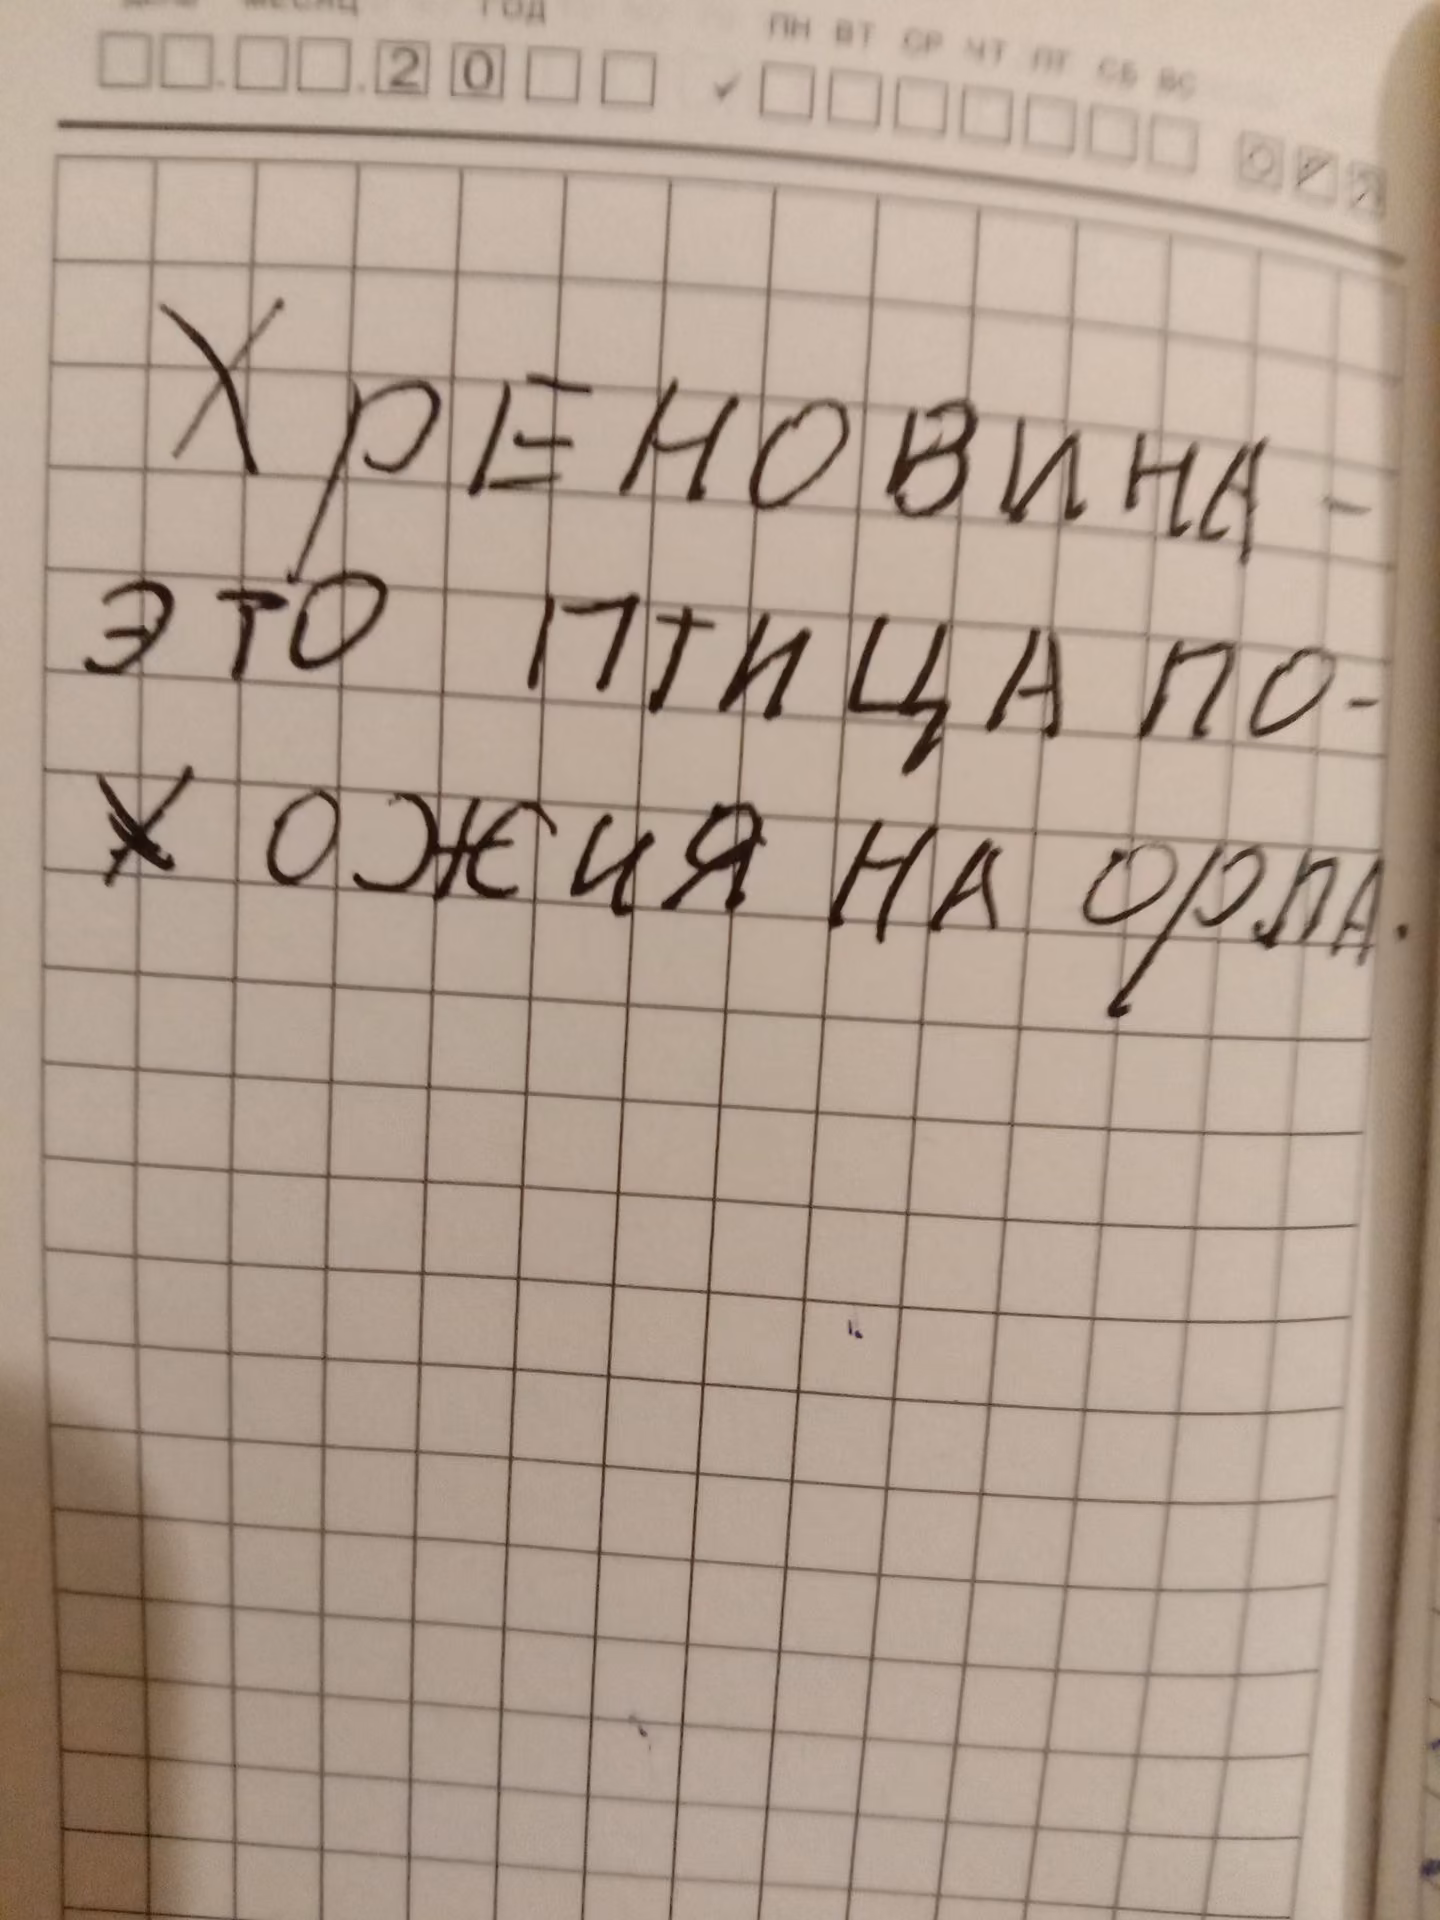 месяц год
20
пн вт ср чт пт сб вс
Хреновина -
это птица по-
хожия на орла.